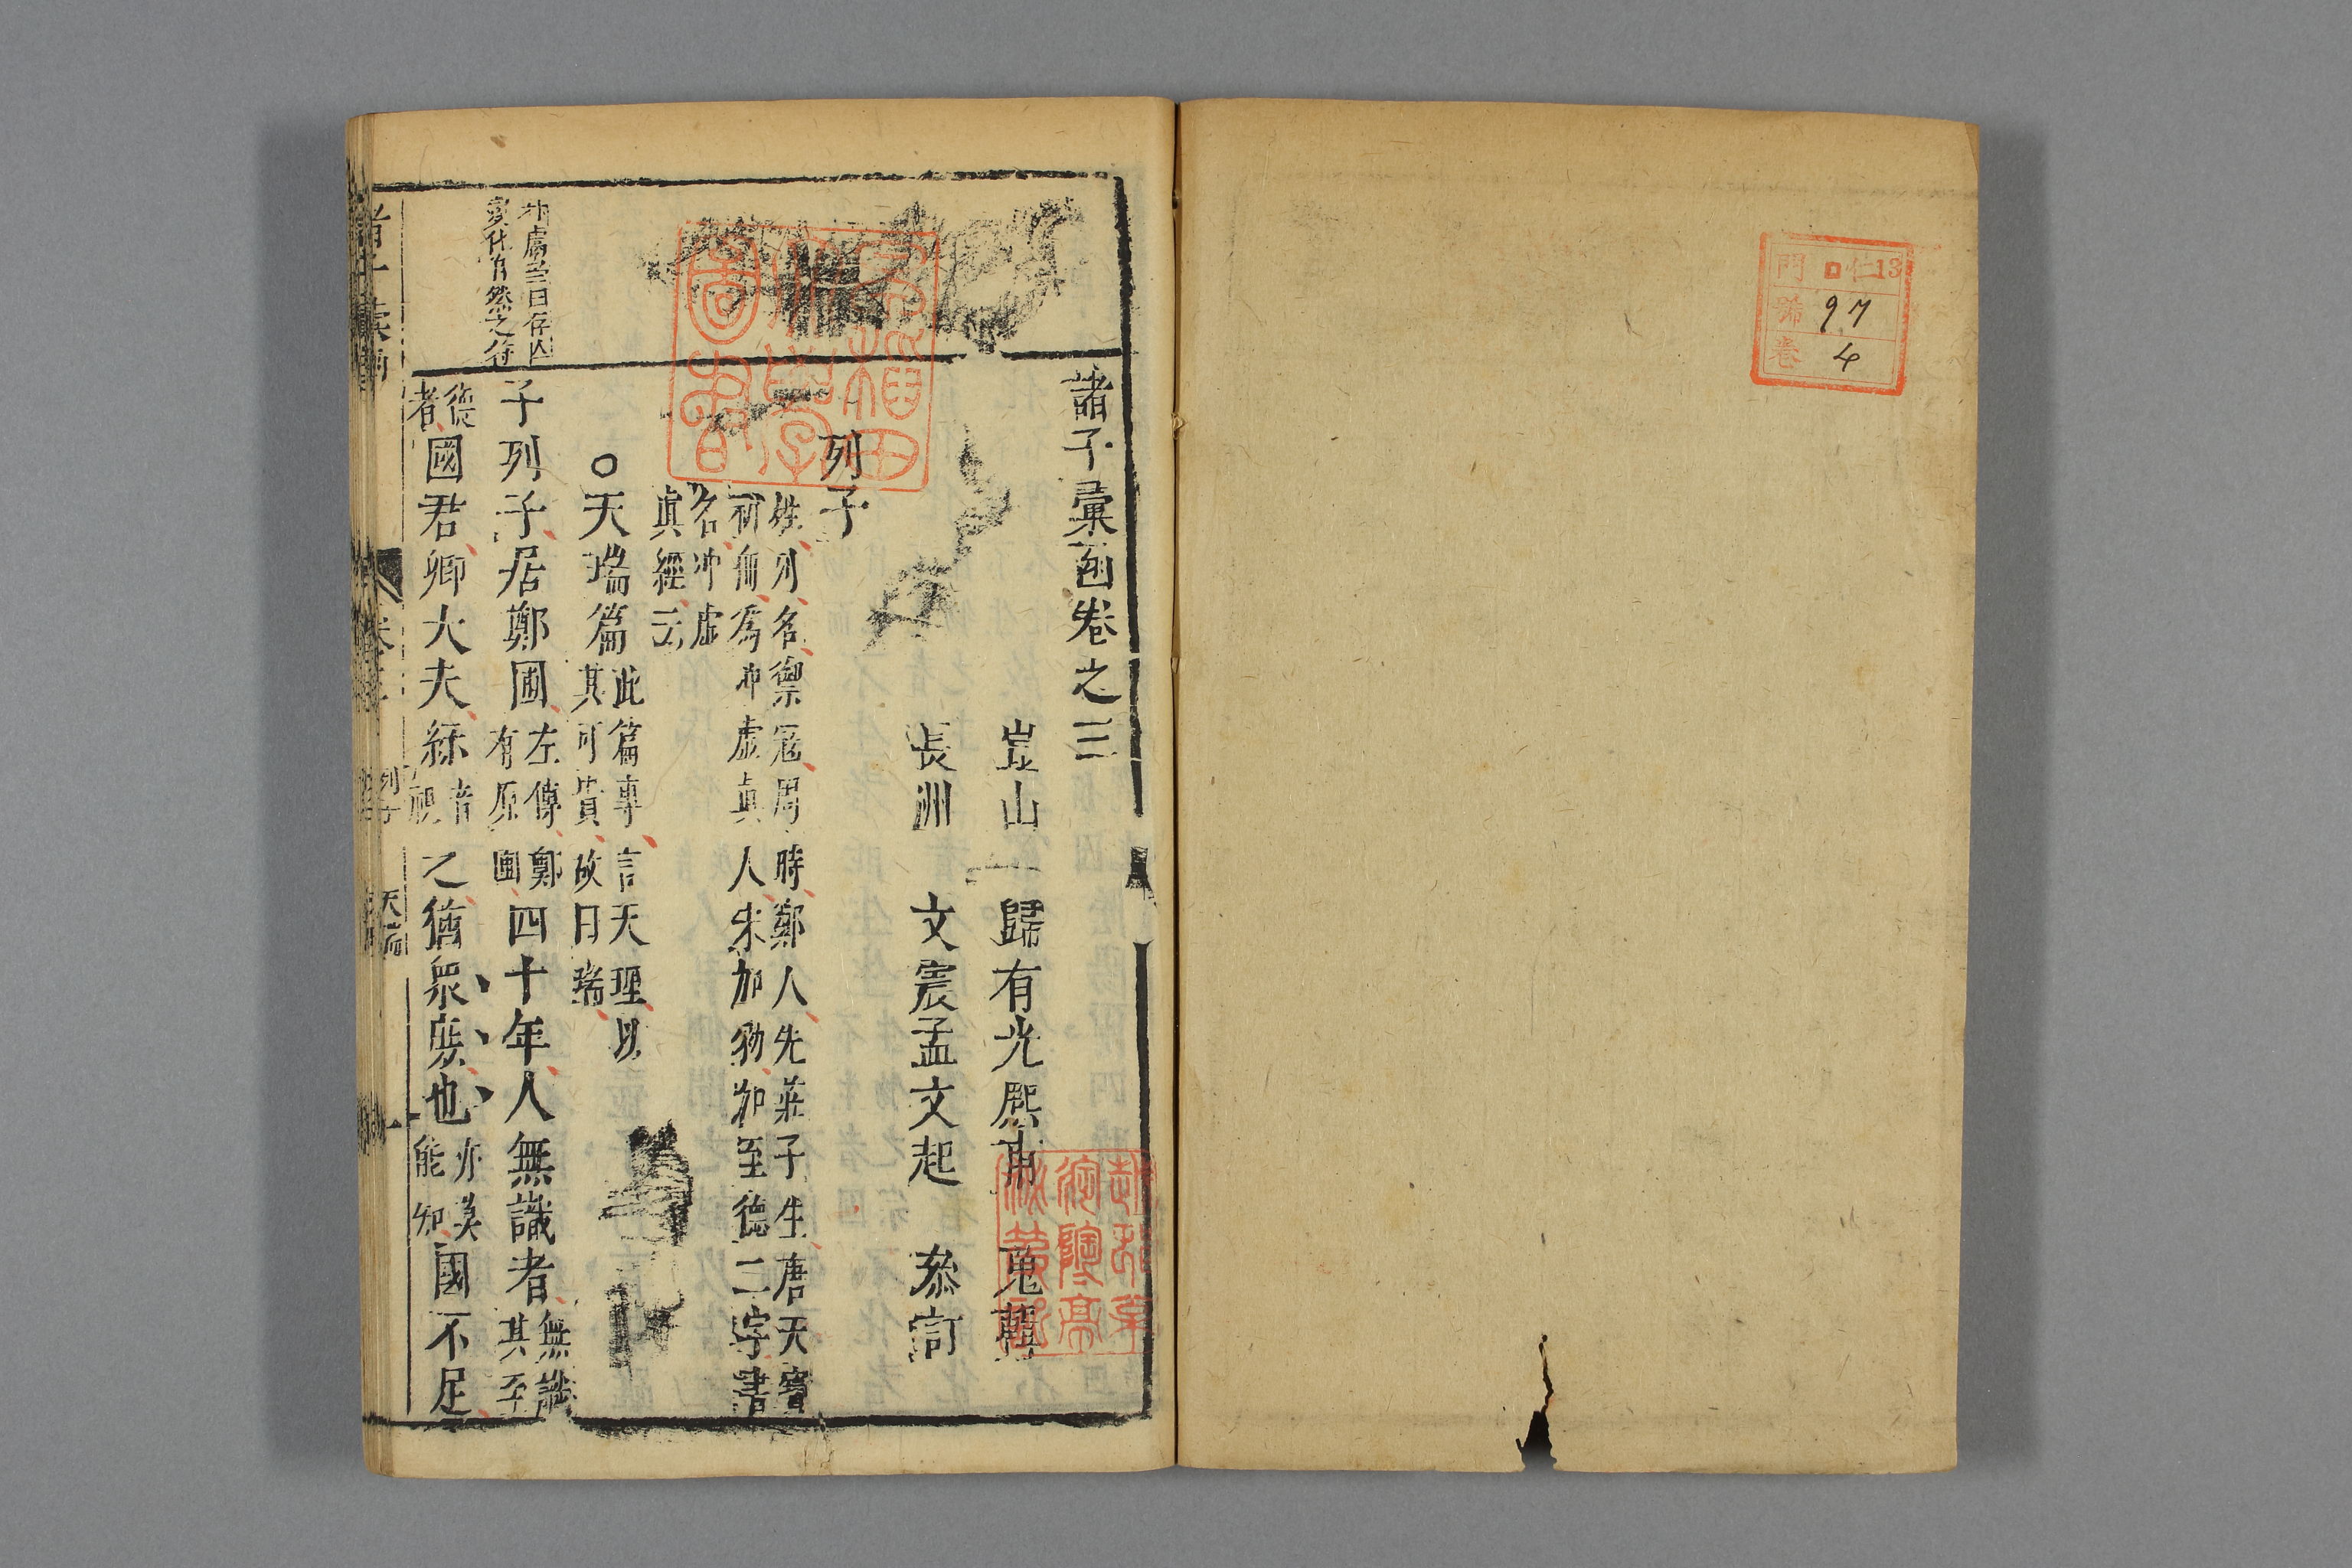 門 仁 13
號 97
卷 4
諸子彙函卷之三
崑山 歸有光熙甫 蒐輯
長洲 文震孟文起 叅訂
早稻田大學圖書
列子
姓列名禦寇周時鄭人先莊子生唐天寶
初冊為冲虛真人宋加號加至德二字書
名冲虛
真經云
○天瑞篇
此篇專言天理以
其可貴故曰瑞
不虞曰存亡
變化自然之符
子列子居鄭圃左傳鄭有原圃四十年人無識者無識其至
德者國君卿大夫眎音視之猶眾庶也亦莫能知國不足
列子
天瑞